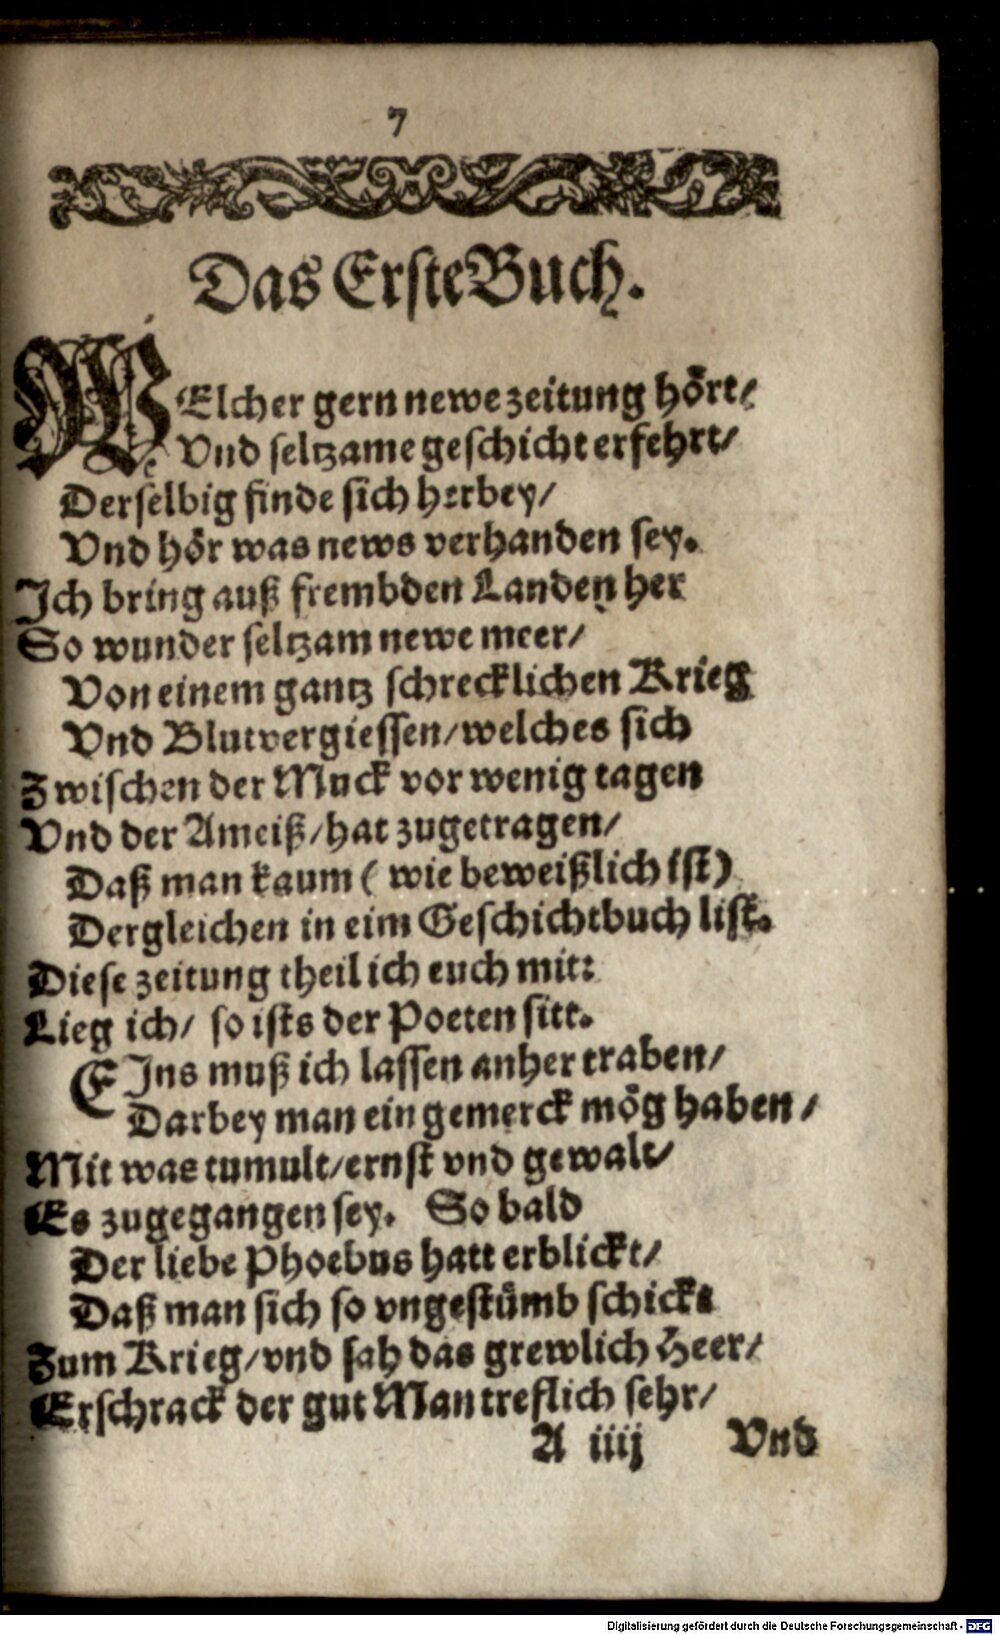 7
Das Erste Buch.
WElcher gern newe zeitung hört/
Vnd seltzame geschicht erfehrt/
Derselbig finde sich herbey/
Vnd hör was news verhanden sey.
Ich bring auß frembden Landen her
So wunder seltzam newe meer/
Von einem gantz schrecklichen Krieg
Vnd Blutvergiessen/welches sich
Zwischen der Muck vor wenig tagen
Vnd der Ameiß/hat zugetragen/
Daß man kaum (wie beweißlich ist)
Dergleichen in eim Geschichtbuch list.
Diese zeitung theil ich euch mit:
Lieg ich/ so ists der Poeten sitt.
EIns muß ich lassen anher traben/
Darbey man ein gemerck mög haben/
Mit was tumult/ernst vnd gewalt/
Es zugegangen sey. So bald
Der liebe Phoebus hatt erblickt/
Daß man sich so vngestümb schickt
Zum Krieg/vnd sah das grewlich Heer/
Erschrack der gut Man treflich sehr/
A iiij Vnd
Digitalisierung gefördert durch die Deutsche Forschungsgemeinschaft - DFG